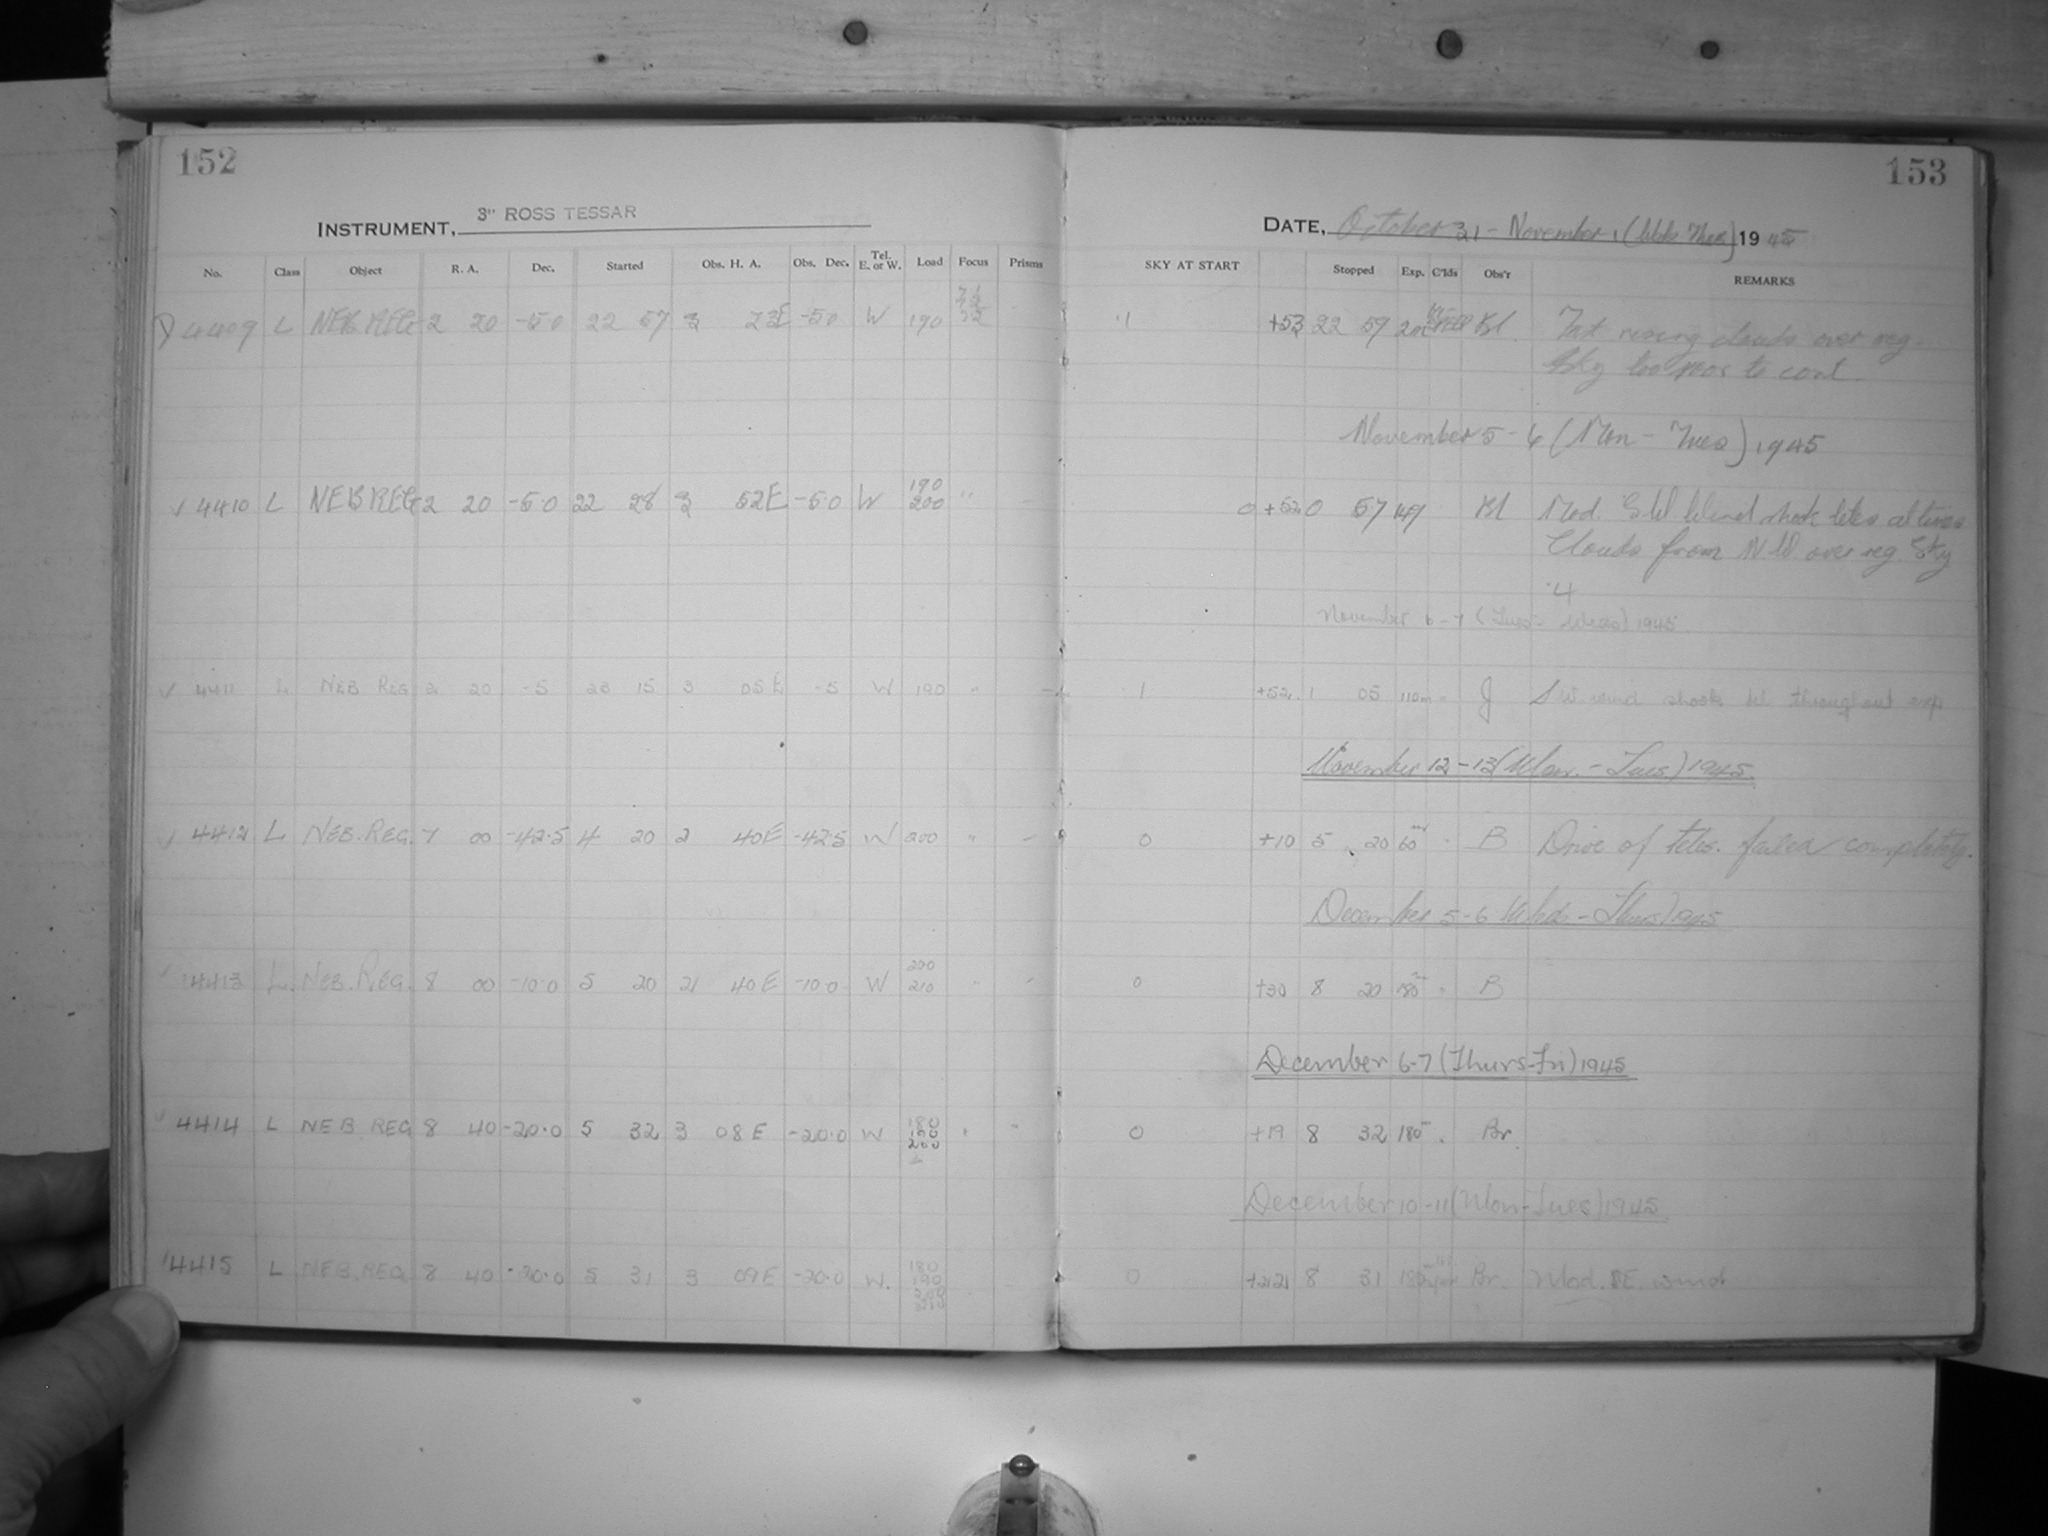 152
153
INSTRUMENT, 3" ROSS TESSAR
DATE, October 31 - November 1 (Weds Thurs) 1945
No. Class Object R. A. Dec. Started Obs. H. A. Obs. Dec. Tel. E. or W. Load Focus Prisms SKY AT START Stopped Exp. C'lds Obs'r REMARKS
4409 L NEB.REG 2 20 -5.0 22 57 3 23E -5.0 W 190 .1 +53 22 59 Bl. rising clouds over reg.
Sky too poor to cont
November 5-6 (Mon - Tues) 1945
√ 4410 L NEB REG 2 20 -5.0 22 28 3 52E -5.0 W 190 200 " 0 +52 0 57 149 Bl Mod. S W Wind shook teles at times
Clouds from N W over reg. Sky
.4
November 6-7 (Tues - Weds) 1945
√ 4411 L NEB REG 2 20 -5 23 15 3 05 E -5 W 190 " - .1 +52 1 05 110m J S W wind shook tel throughout exp
November 12-13 (Mon. - Tues.) 1945.
√ 4412 L NEB.REG. 7 00 -42.5 4 20 2 40E -42.5 W 200 " - 0 +10 5 20 60 B Drive of teles. failed completely.
December 5-6 (Weds - Thurs) 1945
√ 4413 L. NEB.REG. 8 00 -10.0 5 20 2 40E -10.0 W 200 210 " - 0 +30 8 20 180 B
December 6-7 (Thurs-Fri) 1945
√ 4414 L NEB.REG 8 40 -20.0 5 32 3 08 E -20.0 W 180 190 200 0 +19 8 32 180 Br.
December 10-11 (Mon-Tues) 1945
√ 4415 L NEB.REG 8 40 -20.0 5 31 3 09E -20.0 W. 180 190 200 210 0 +21 8 31 180 Br. Mod. SE. wind